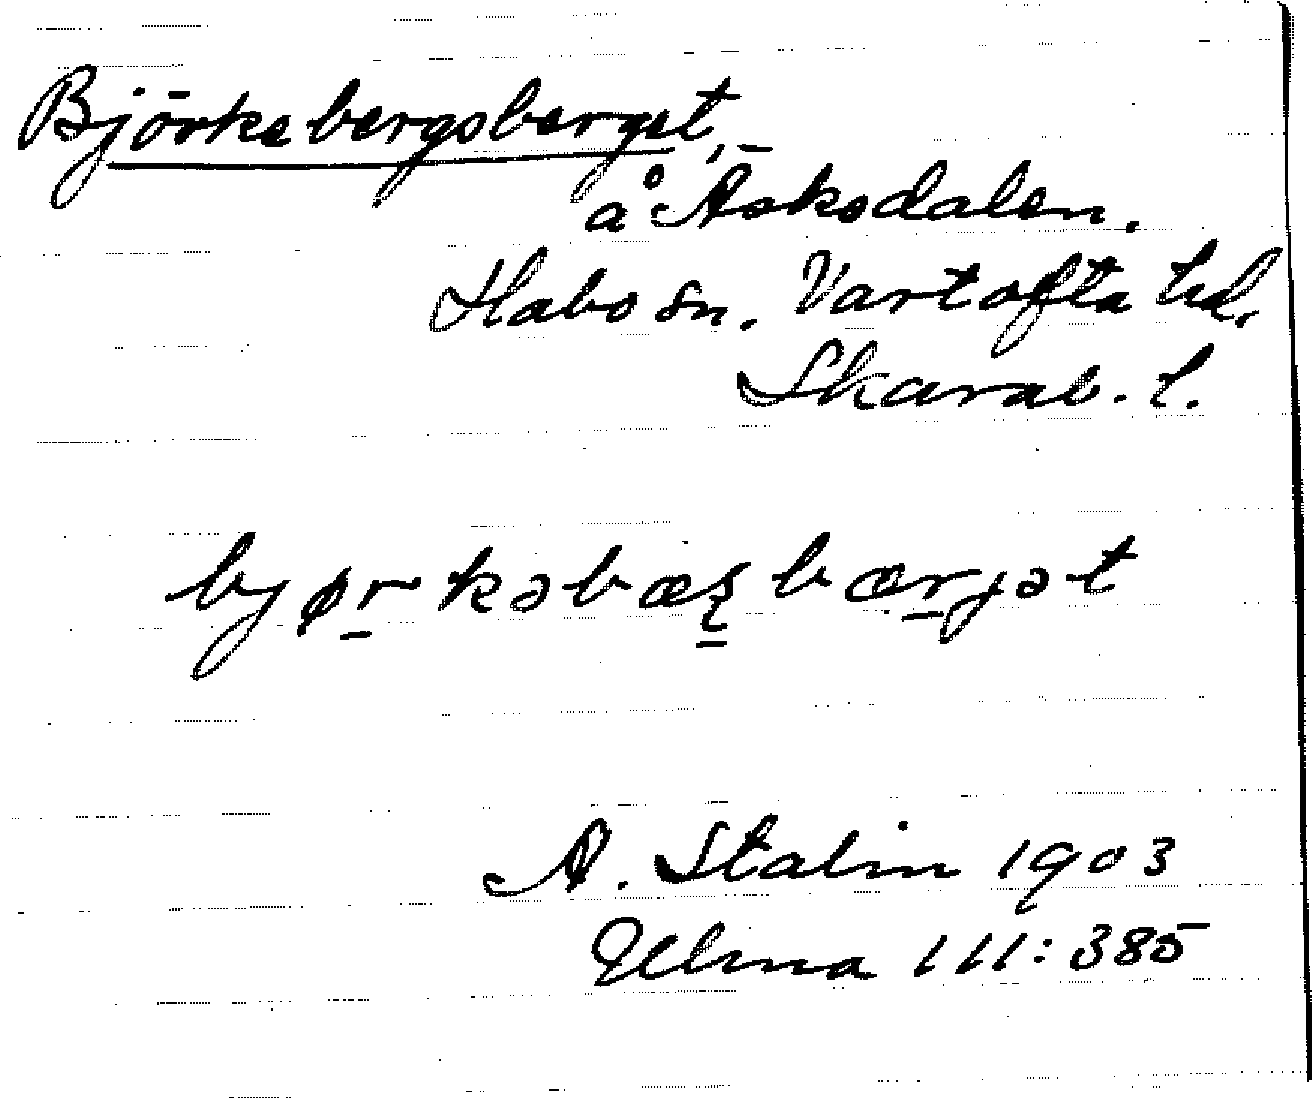 Björkebergsberget,
å Äsksdalen.
Habo sn. Vartofta hd.
Skarab. l.
bjørkəbæʂbærjət
A. Stalin 1903
Ulma 111:385